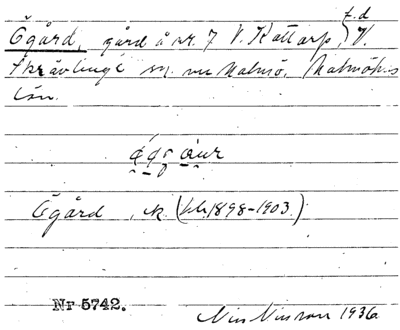 t.d
Ögård, gård å nr. 7 V. Kattarp, V.
Skrävlinge sn. nu Malmö, Malmöhus
län.
Ögård, ek. (1898-1903)
Nr 5742.
Nils Nilsson 1936